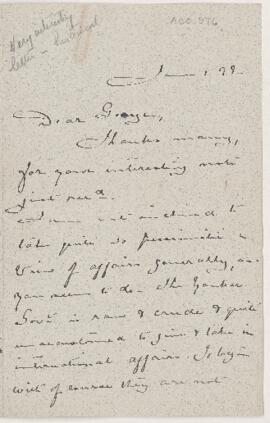 Very interesting
letter -
ACC. 976
Jan 1. 99.
Dear George,
Thanks many,
for your interesting note
just recd.
I am not inclined to
take quite so pessimistic a
view of affairs generally, as
you seem to do. The Yankee
Govt is raw & crude & quite
unaccustomed to give & take in
international affairs. To begin
with of course they are not